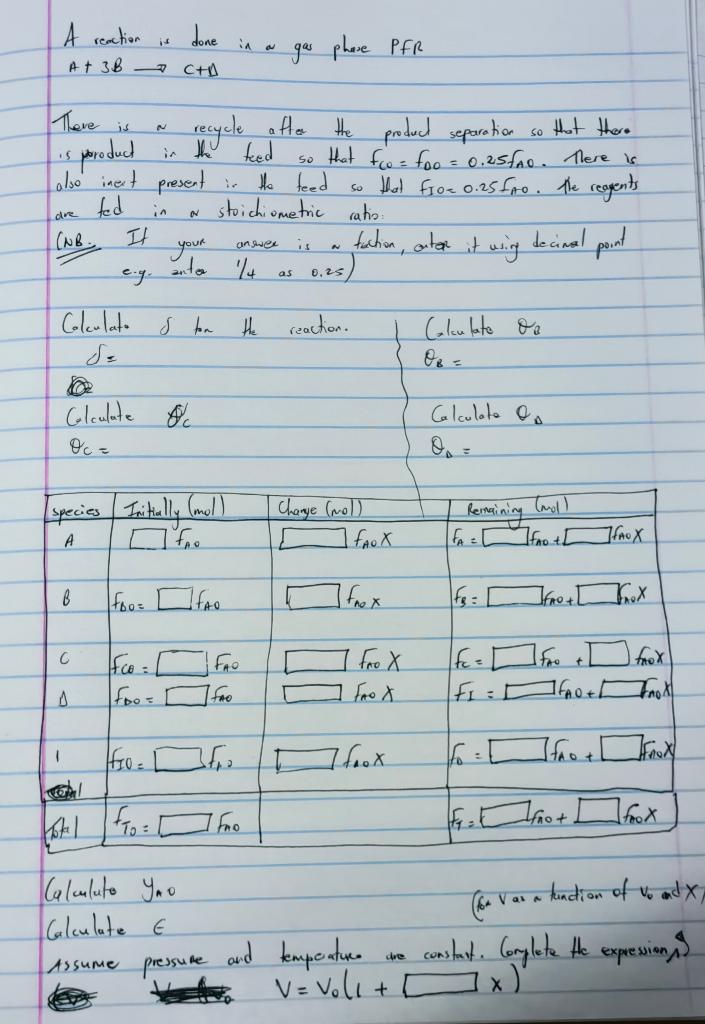 A reaction is done in a gas phase PFR
A + 3B → C+D
There is a recycle after the product separation so that there
is product in the feed so that fco = fDO = 0.25fAO. There is
also inert present in the feed so that fIO = 0.25fAO. The reagents
are fed in a stoichiometric ratio.
(NB. If your answer is a fraction, enter it using decimal point
e.g. enter 1/4 as 0.25)
Calculate δ for the reaction. Calculate θB
δ = θB =
Calculate θc Calculate θD
θc = θD =
Species Initially (mol) Change (mol) Remaining (mol)
A fAO fAOX fA = fAO + fAOX
B fBO = fAO fAOX fB = fAO + fAOX
C fCO = fAO fAOX fC = fAO + fAOX
D fDO = fAO fAOX fI = fAO + fAOX
I fIO = fAO fAOX fD = fAO + fAOX
Total fTO = fAO fT = fAO + fAOX
Calculate yAO
(for V as a function of Vo and X)
Calculate ε
Assume pressure and temperature are constant. Complete the expression
V = Vo(1 + x)